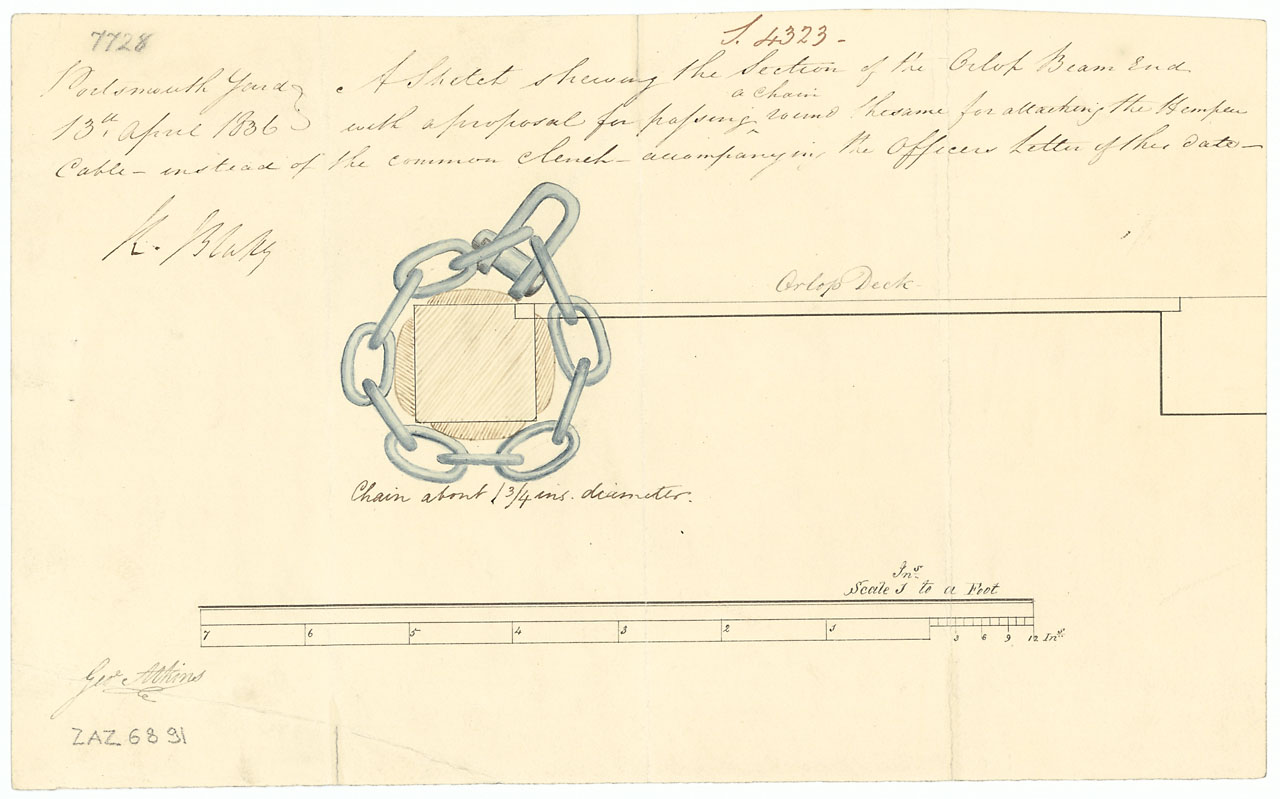 7728
S. 4323-
Portsmouth Yard A Sketch shewing the Section of the Orlop Beam End
a chain
13th. April 1836 with a proposal for passing ^ round thesame for attaching the Hempen
Cable - instead of the common Clench - accompanying the Officers Letter of this date -
Orlop Deck
Chain about 1 3/4 ins. diameter.
Ins.
Scale 1 to a Foot
7 6 5 4 3 2 1 3 6 9 12 Ins.
Geo. Atkins
ZAZ 6891